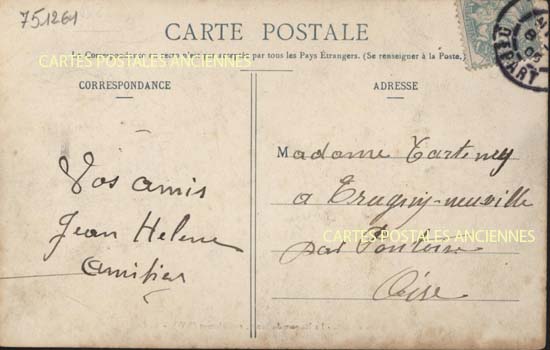 751261
CARTE POSTALE
La Correspondance au recto n'est pas acceptée par tous les Pays Étrangers. (Se renseigner à la Poste.)
CARTES POSTALES ANCIENNES
CORRESPONDANCE
ADRESSE
DEPART
Vos amis
Jean Helene
Amitiés
Madame
a Trugny-neuville
CARTES POSTALES ANCIENNES
par
Oise